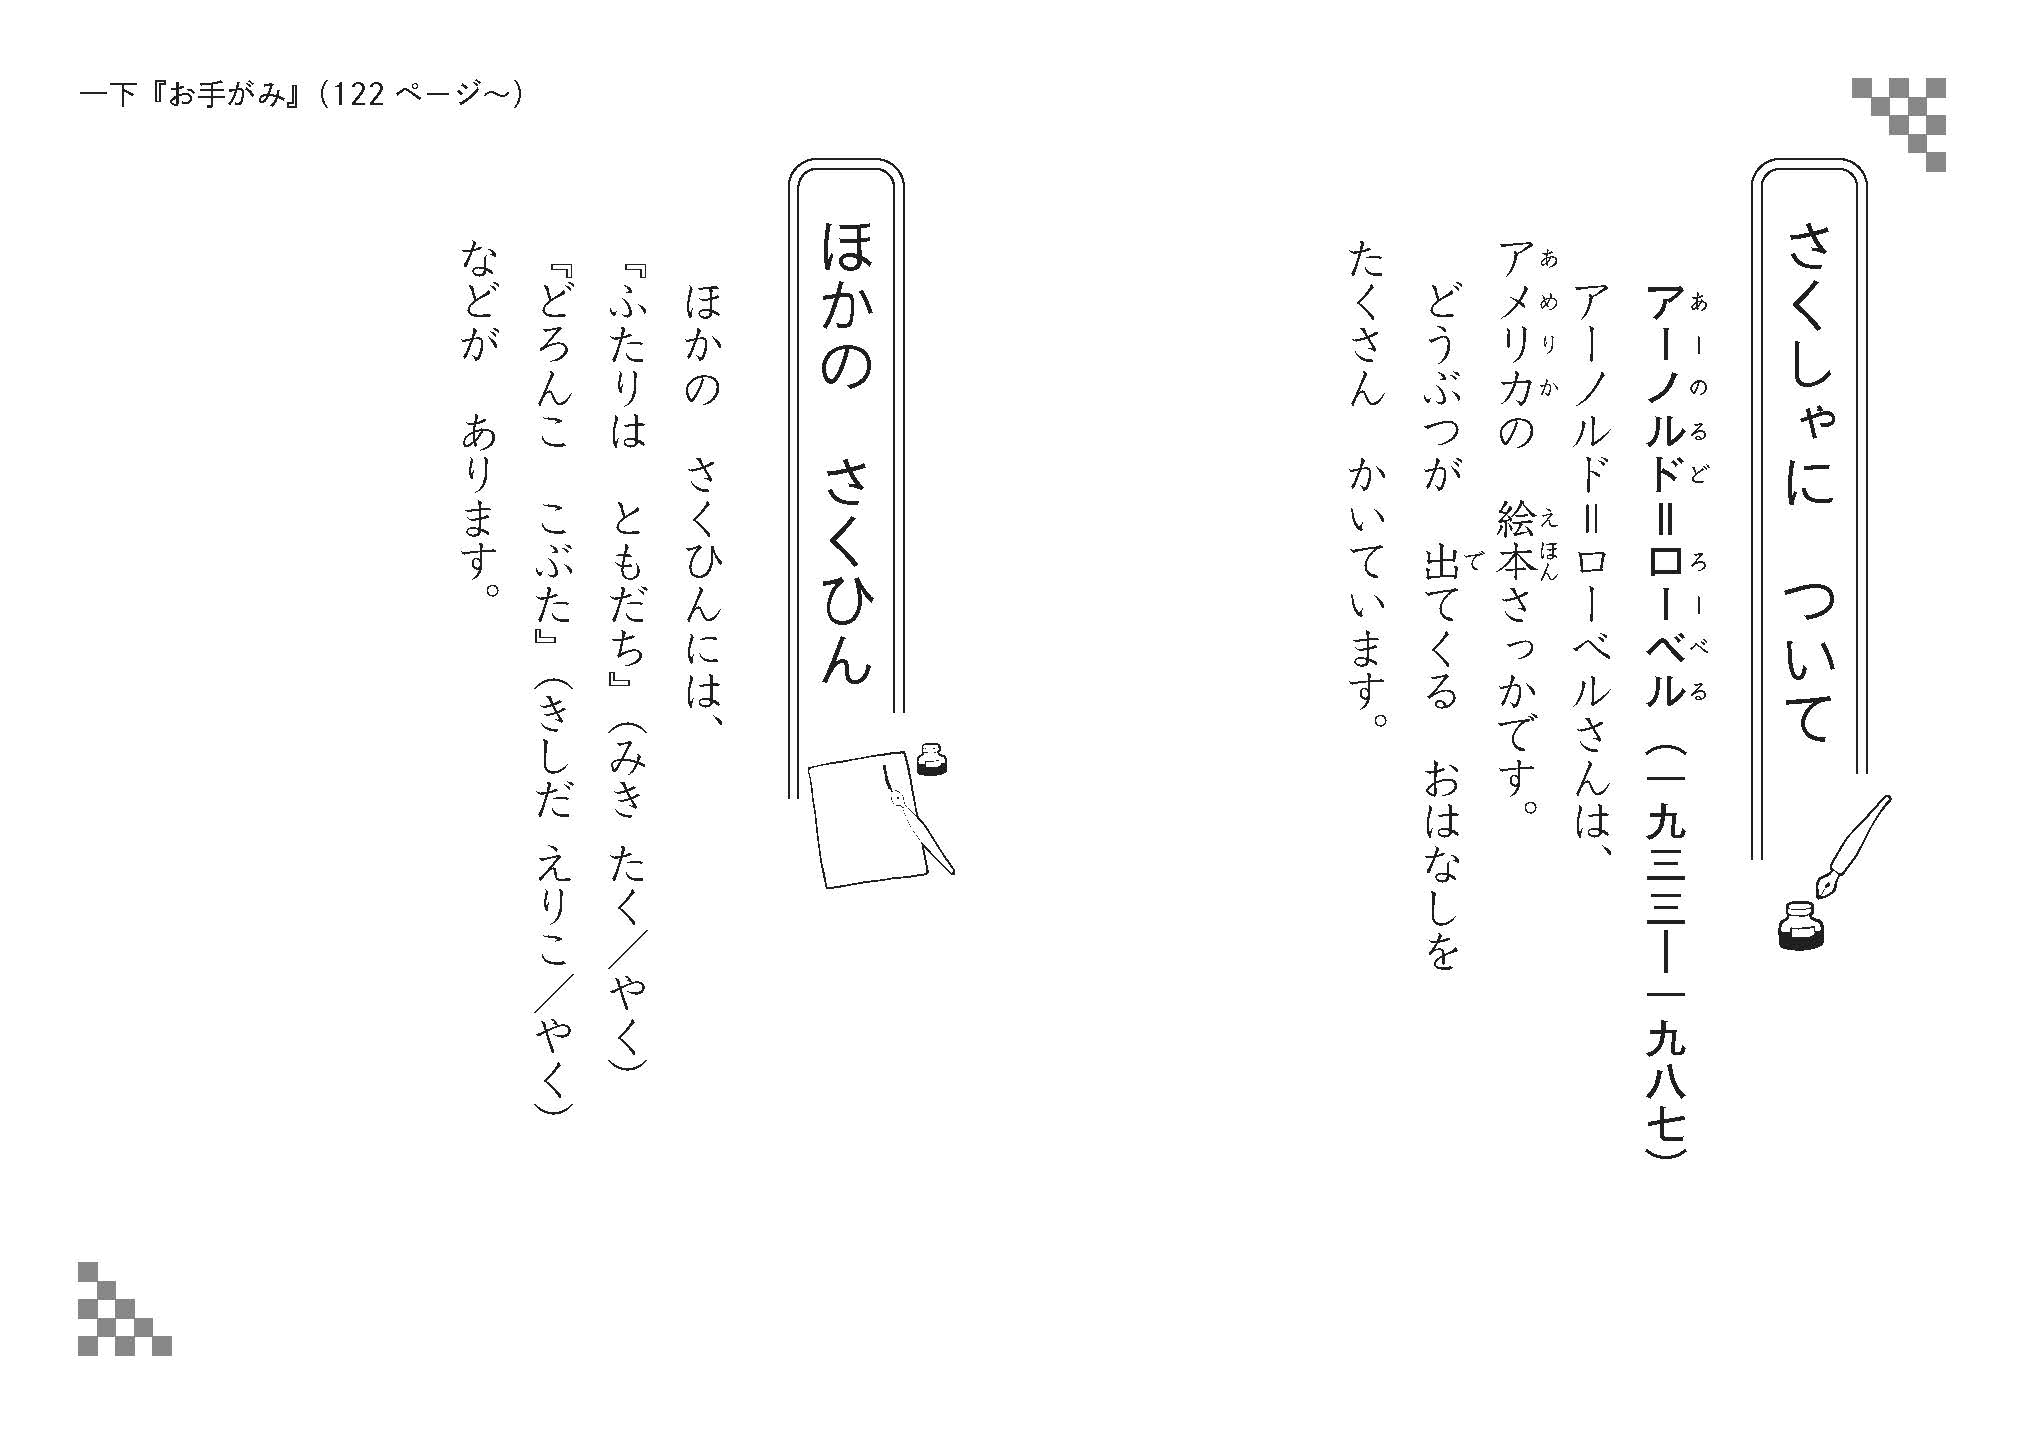 一下『お手がみ』（122 ページ～）
さくしゃに　ついて
アーノルド＝ローベル（一九三三―一九八七）
あーのるど　ろーべる
アーノルド＝ローベルさんは、
アメリカの　絵本さっかです。
あめりか　えほん
どうぶつが　出てくる　おはなしを
で
たくさん　かいています。
ほかの　さくひん
ほかの　さくひんには、
『ふたりは　ともだち』（みき たく／やく）
『どろんこ　こぶた』（きしだ えりこ／やく）
などが　あります。